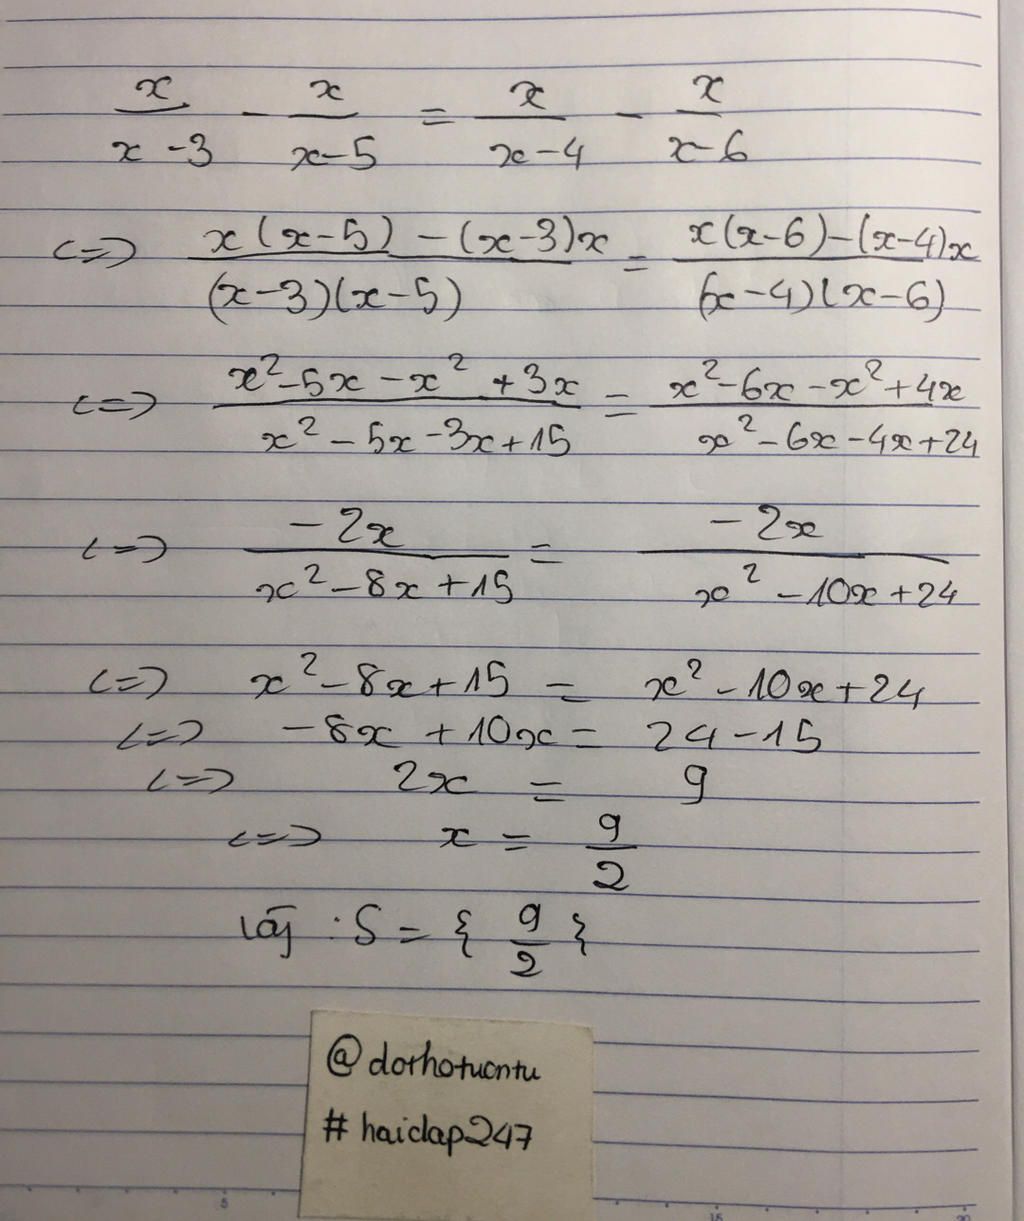 x/(x-3) - x/(x-5) = x/(x-4) - x/(x-6)
<=> (x(x-5)-(x-3)x)/((x-3)(x-5)) = (x(x-6)-(x-4)x)/((x-4)(x-6))
<=> (x²-5x-x²+3x)/(x²-5x-3x+15) = (x²-6x-x²+4x)/(x²-6x-4x+24)
<=> -2x/(x²-8x+15) = -2x/(x²-10x+24)
<=> x²-8x+15 = x²-10x+24
<=> -8x+10x = 24-15
<=> 2x = 9
<=> x = 9/2
: S = { 9/2 }
@dothotuantu
#haidap247
5 15 20